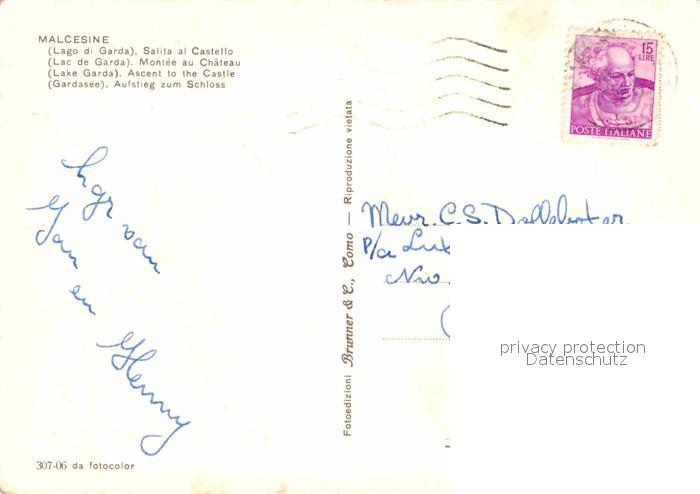 MALCESINE
(Lago di Garda), Salita al Castello
(Lac de Garda). Montée au Château
(Lake Garda). Ascent to the Castle
(Gardasee). Aufstieg zum Schloss
15
LIRE
POSTE ITALIANE
hgr van
Jan en Henny
Fotoedizioni Brunner & C., Como — Riproduzione vietata
Mevr. C. S.
P/a
privacy protection
Datenschutz
307-06 da fotocolor